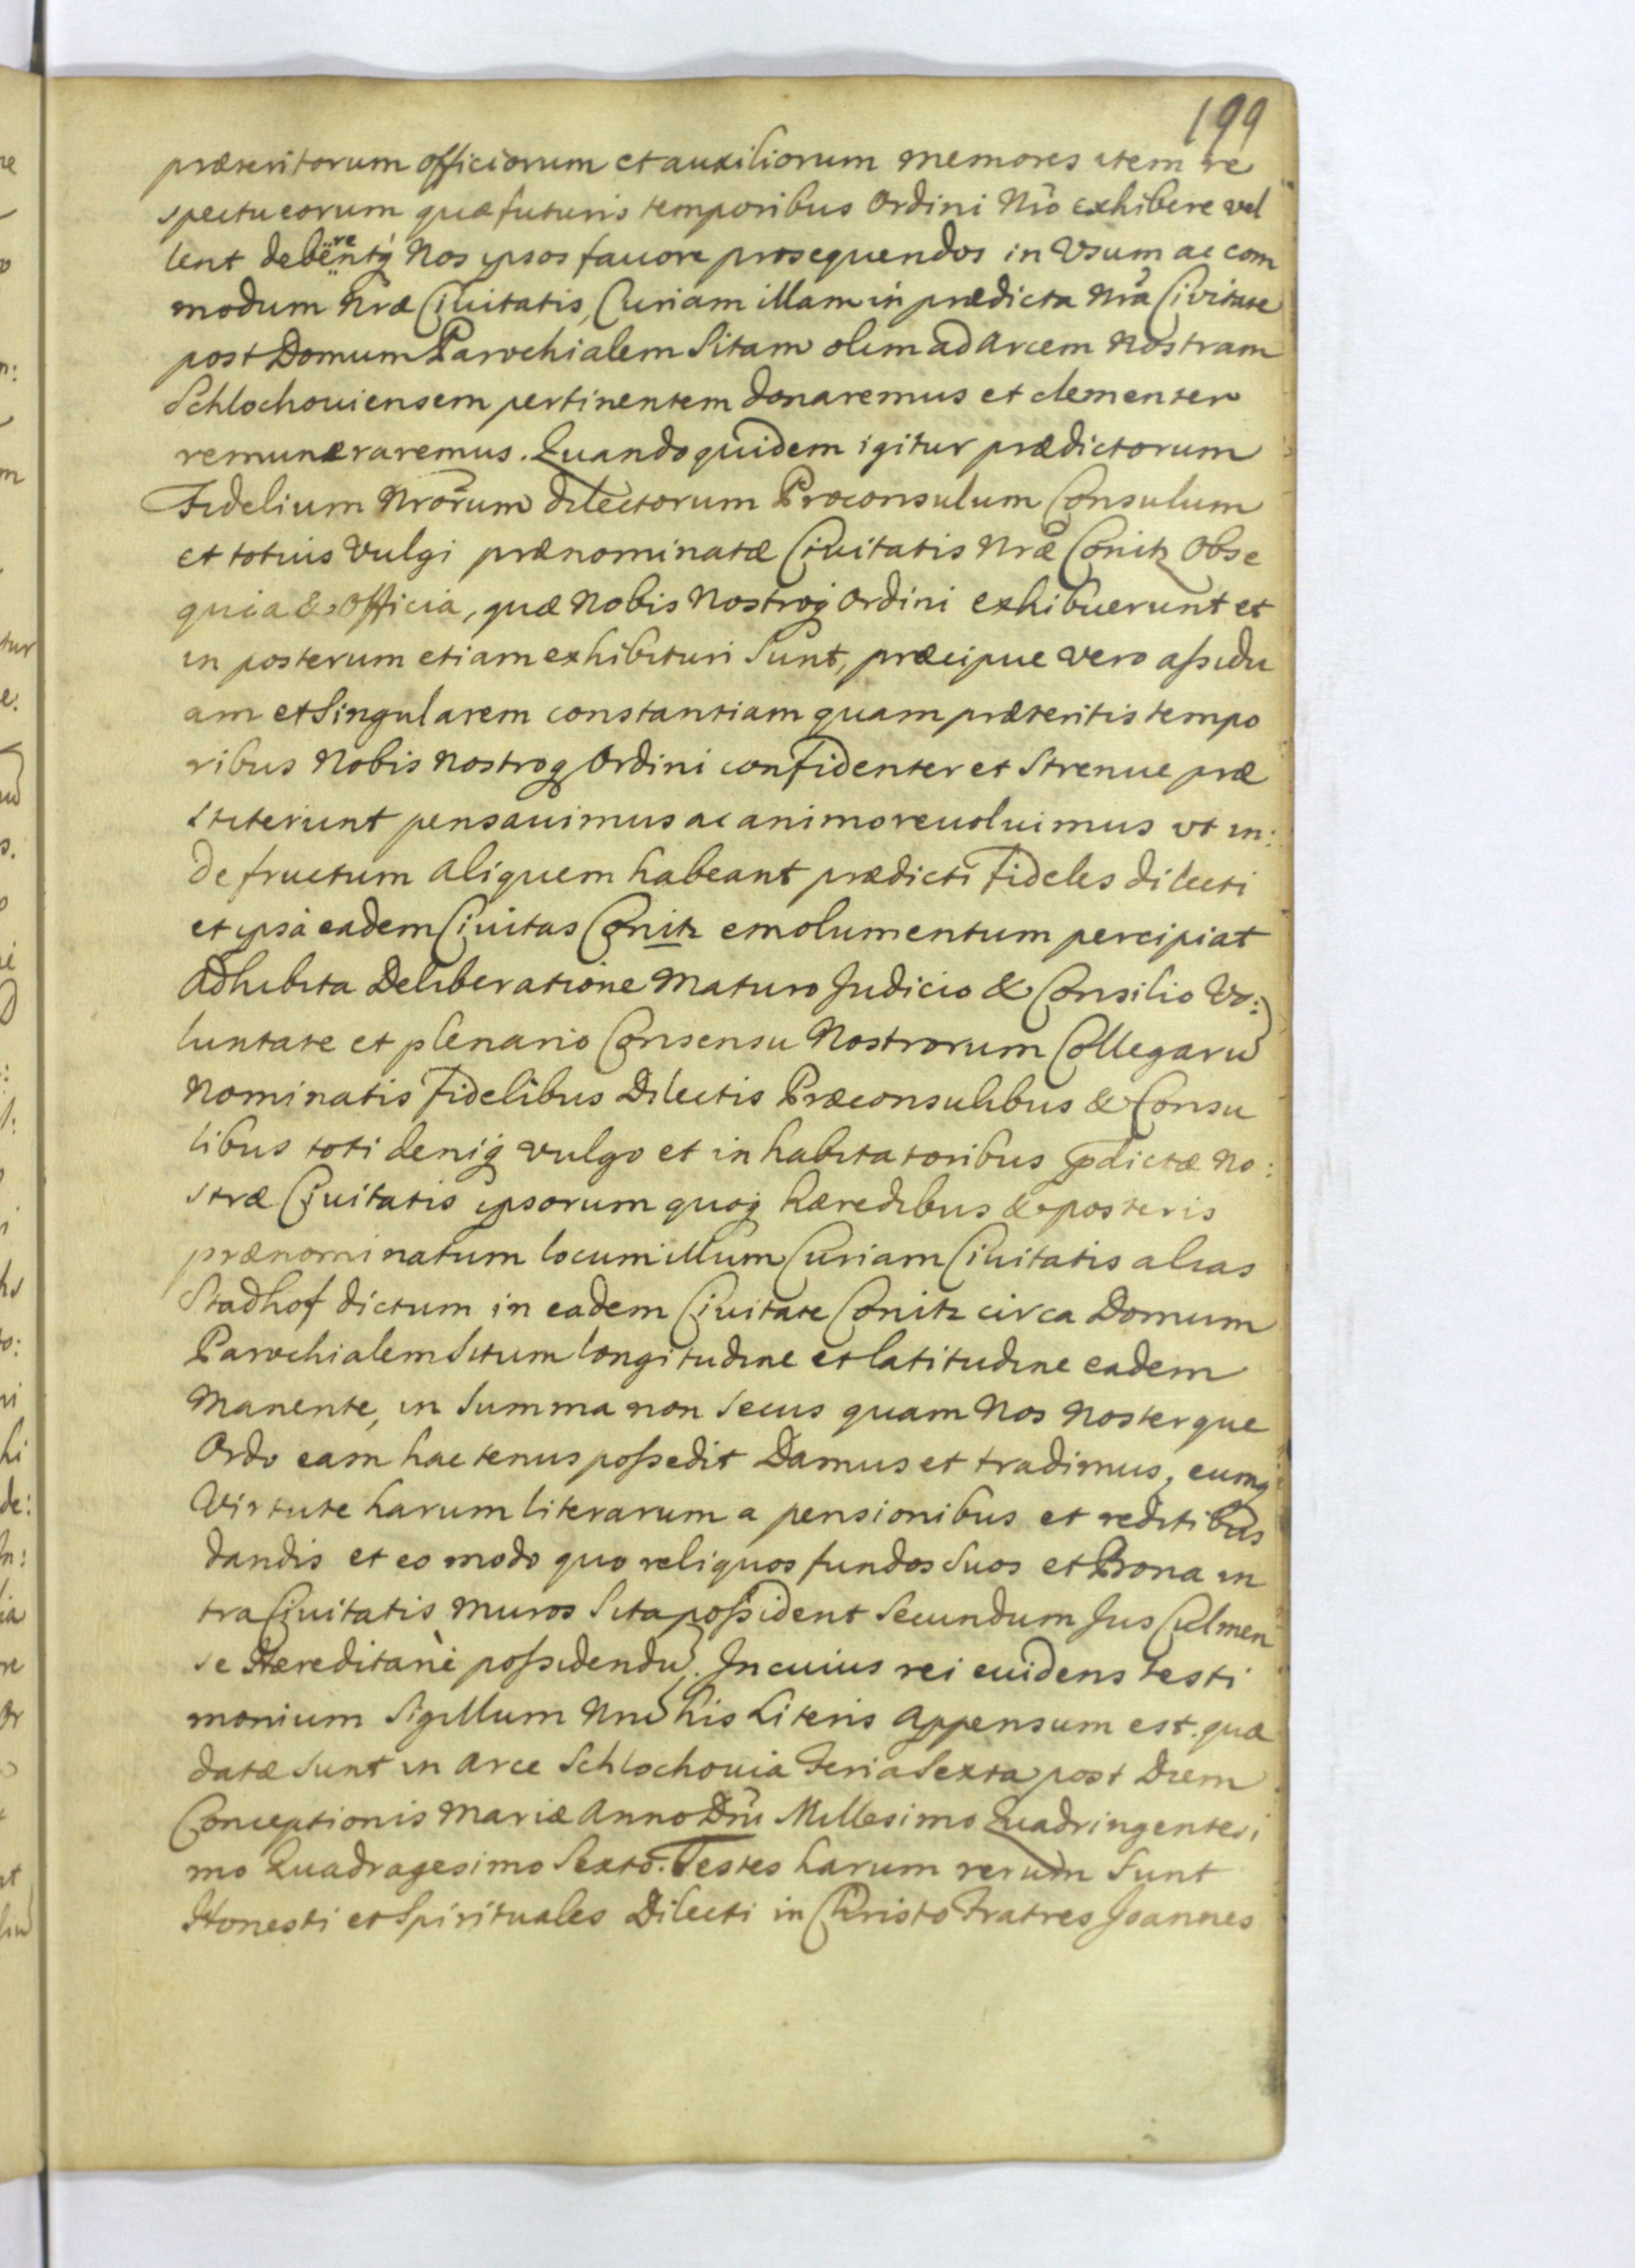 199
præteritorum officiorum et auxiliorum memores item re
spectu eorum quæ futuris temporibus Ordini Nrõ exhibere vel
lent deberentq́ Nos ipsos fauore prosequendos in Vsum ac com
modum Nræ Ciuitatis, Curiam illam in prædicta Nrã Civitate
post Domum Parochialem Sitam olim ad Arcem Nostram
Schlochouiensem pertinentem donaremus et clementer
remuneraremus. Quandoquidem igitur prædictorum
Fidelium Nrõrum dilectorum Proconsulum Consulum
et totius Vulgi prænominatæ Ciuitatis Nræ̃ Conitz Obse
quia & Officia, quæ Nobis Nostroq́ Ordini exhibuerunt et
in posterum etiam exhibituri Sunt, præcipue vero assidu
am et Singularem constantiam quam præteritis tempo
ribus Nobis Nostroq́ Ordini confidenter et Strenue præ
stiterunt pensauimus ac animo reuoluimus vt in:
de fructum aliquem habeant prædicti Fideles dilecti
et ipsa eadem Ciuitas Conitz emolumentum percipiat
Adhibita Deliberatione Maturo Judicio & Consilio Vo:
luntate et plenario Consensu Nostrorum Collegarũ
Nominatis Fidelibus Dilectis Præconsulibus & Consu
libus toti deniq́ vulgo et inhabitatoribus p̃dictæ No:
stræ Ciuitatis ipsorum quoq́ hæredibus & posteris
prænominatum locum illum Curiam Ciuitatis alias
Stadhof dictum in eadem Ciuitate Conitz circa Domum
Parochialem Situm longitudine et latitudine eadem
Manente, in Summa non Secus quam Nos Nosterque
Ordo eam hactenus possedit Damus et tradimus, eumq́
Virtute harum literarum a pensionibus et reditibus
dandis et eo modo quo reliquos fundos Suos et Bona in
tra Ciuitatis Muros Sita possident Secundum Jus Culmen
se Hæreditariè possidendũ. In cuius rei euidens testi
monium Sigillum Nrũ his Literis Appensum est. quæ
datæ Sunt in Arce Schlochouia Feria Sexta post Diem
Conceptionis Mariæ Anno Dñi Millesimo Quadringentesi
mo Quadragesimo Sexto. Testes harum rerum Sunt
Honesti et Spirituales Dilecti in Christo Fratres Joannes